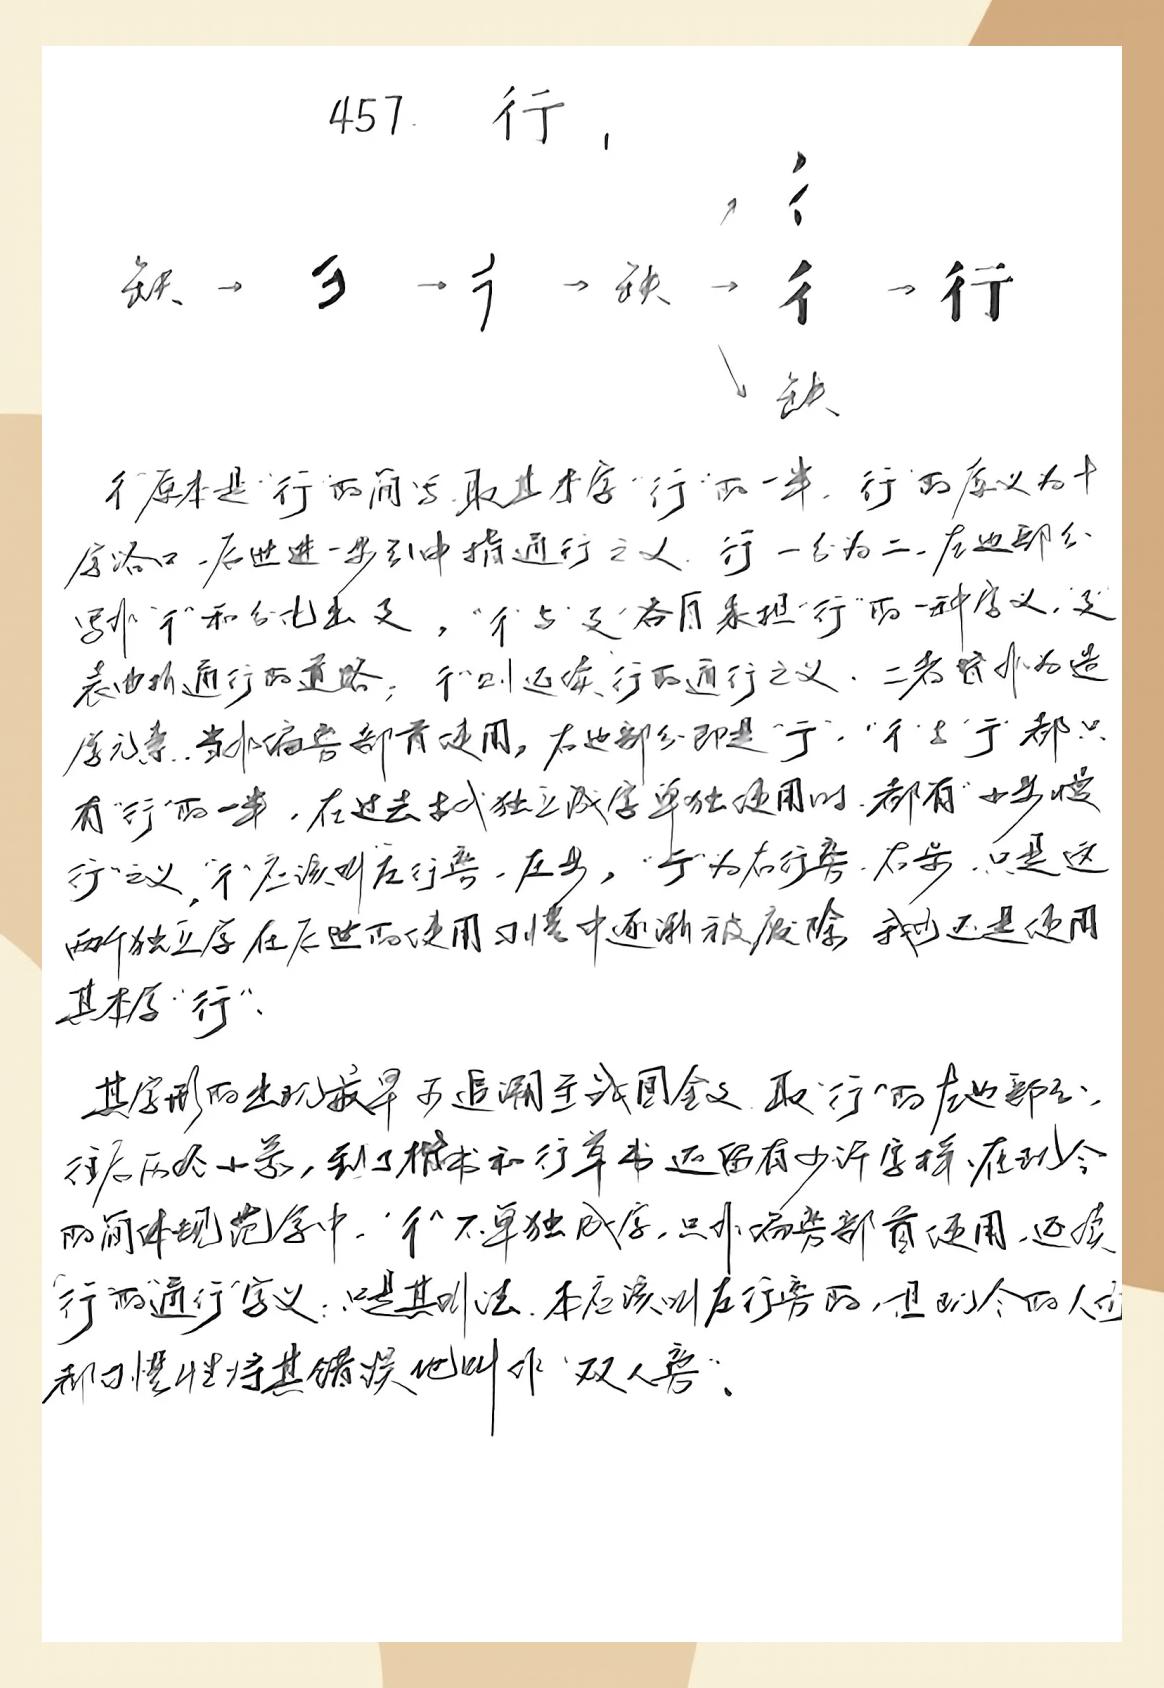 457. 行
彳
缺 → 彳 → 彳 → 缺 → 彳 → 行
缺
"彳"原本是"行"的简写.取其本字"行"的一半.行"的本义为十
字路口.后世进一步引申指通行之义.行一分为二.左边部分
写作"彳"和分化出廴，"彳"与"廴"各自承担"行"的一种字义."廴"
表曲折通行的道路；彳"则延续"行的通行之义.二者皆作为造
字元素..当作偏旁部首使用，右边部分即是"亍".“彳"与"亍"都只
有"行"的一半，在过去古代独立成字单独使用时.都有"小步慢
行"之义，"彳"应该叫"左行旁.左步，"亍"为右行旁.右步.只是这
两个独立字在后世的使用习惯中逐渐被废除 我们还是使用
其本字"行".
其字形的出现最早可追溯至战国金文.取"行"的左边部分，
往后历经小篆，到了楷书和行草书还留有少许字样.在现今
的简体规范字中."彳"不单独成字.只作偏旁部首使用.延续
"行"的"通行"字义；只是其叫法.本应该叫左行旁的，但现今的人们
都习惯性将其错误地叫作"双人旁".